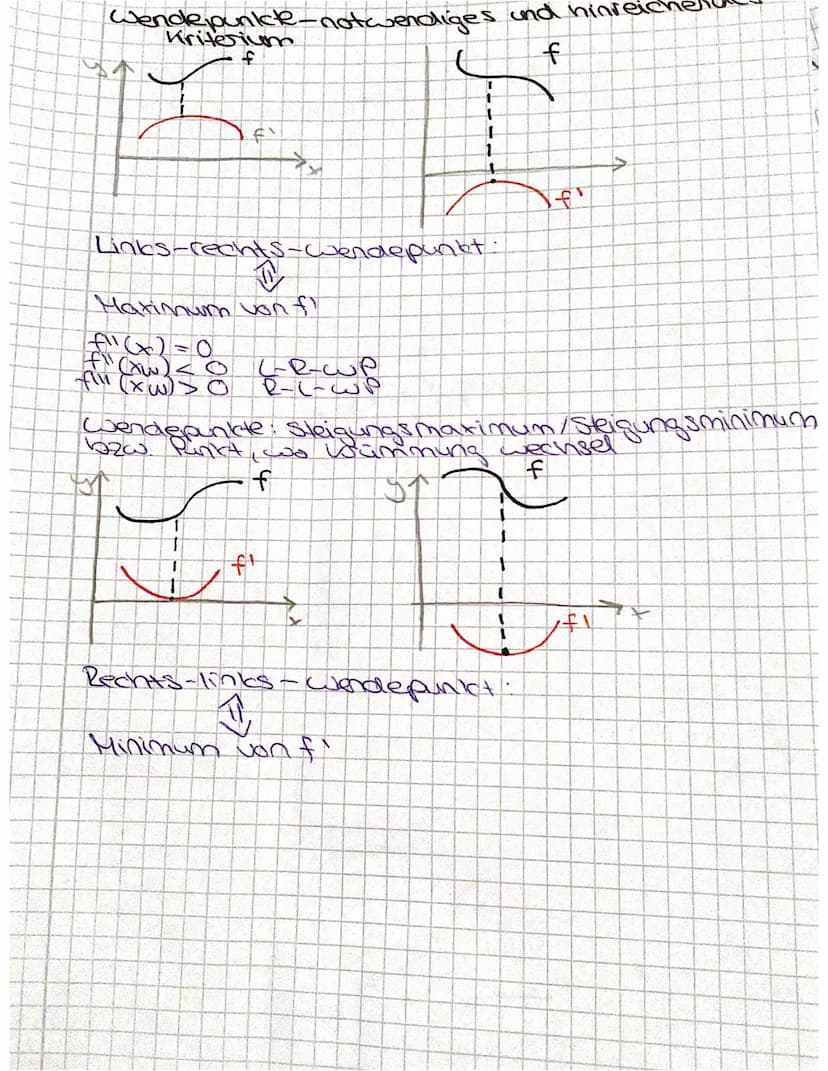 Wendepunkte-notwendiges und hinreichendes
Kriterium
y
f
f'
x
f
f'
Links-rechts-Wendepunkt:
⇕
Maximum von f'
f''(x) = 0
f'''(xw) < 0 L-R-WP
f'''(xw) > 0 R-L-WP
Wendepunkte: Steigungsmaximum/Steigungsminimum
bzw. Punkt, wo Krümmung wechsel
y
f
f'
x
y
f
f'
x
Rechts-links-Wendepunkt:
⇕
Minimum von f'